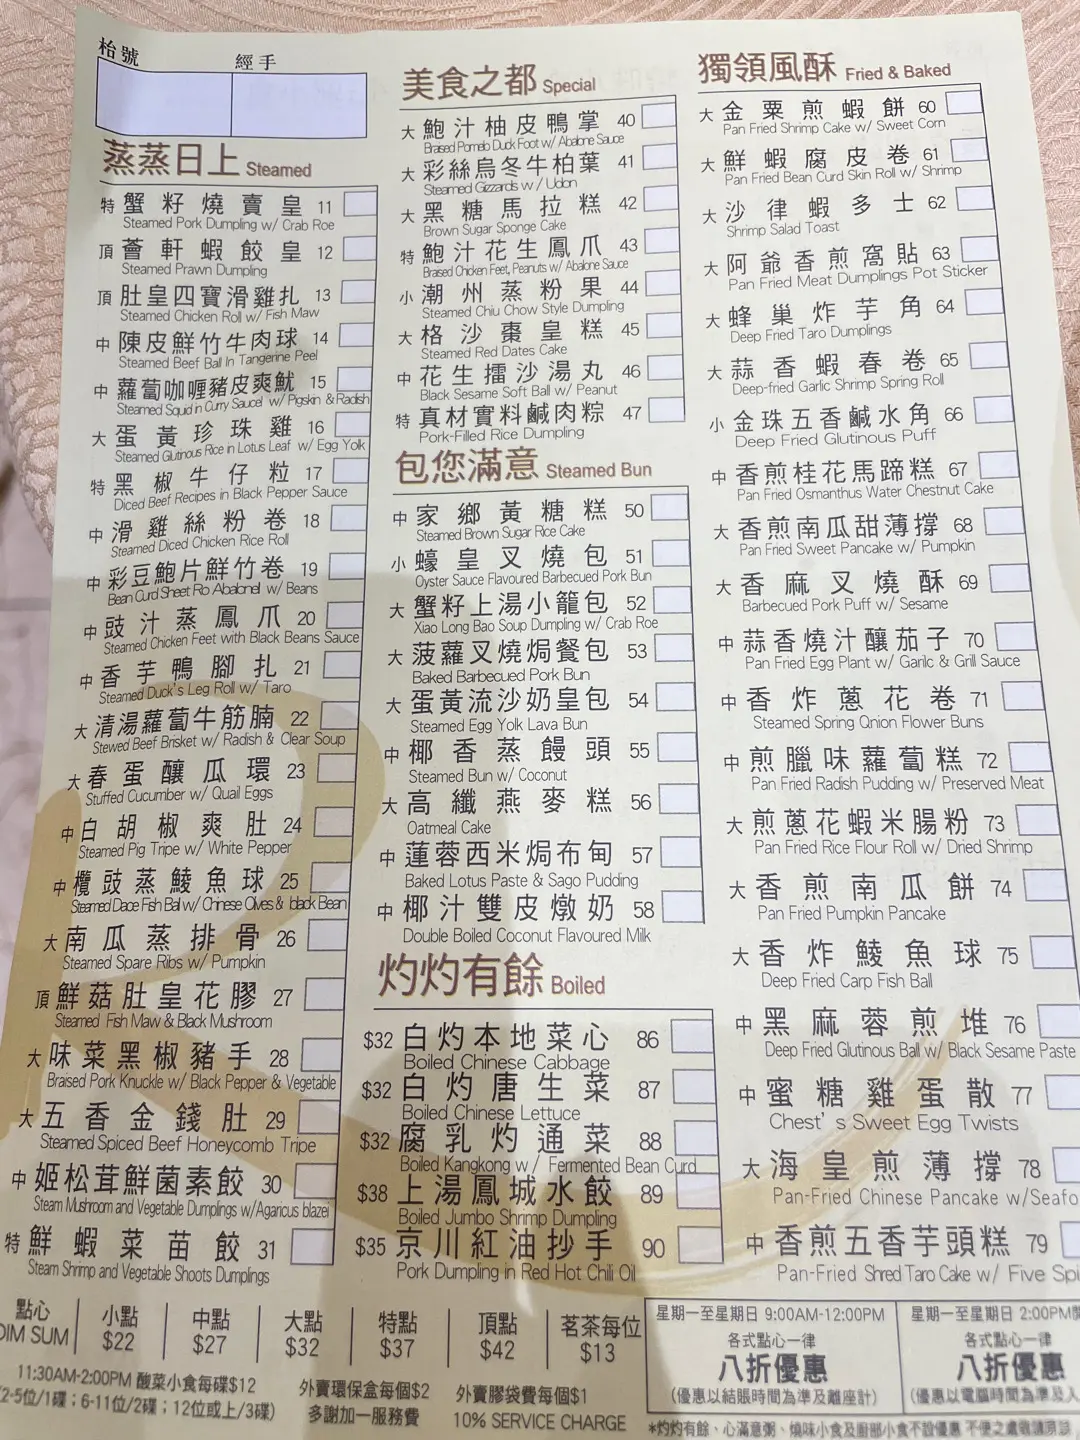 枱號
經手
蒸蒸日上 Steamed
特 蟹籽燒賣皇 11
Steamed Pork Dumpling w/ Crab Roe
頂 薈軒蝦餃皇 12
Steamed Prawn Dumpling
頂 肚皇四寶滑雞扎 13
Steamed Chicken Roll w/ Fish Maw
中 陳皮鮮竹牛肉球 14
Steamed Beef Ball In Tangerine Peel
中 蘿蔔咖喱豬皮爽魷 15
Steamed Squid in Curry Saucel w/ Pigskin & Radish
大 蛋黃珍珠雞 16
Steamed Glutinous Rice in Lotus Leaf w/ Egg Yolk
特 黑椒牛仔粒 17
Diced Beef Recipes in Black Pepper Sauce
中 滑雞絲粉卷 18
Steamed Diced Chicken Rice Roll
中 彩豆鮑片鮮竹卷 19
Bean Curd Sheet Ro Abalonel w/ Beans
中 豉汁蒸鳳爪 20
Steamed Chicken Feet with Black Beans Sauce
中 香芋鴨腳扎 21
Steamed Duck's Leg Roll w/ Taro
大 清湯蘿蔔牛筋腩 22
Stewed Beef Brisket w/ Radish & Clear Soup
大 春蛋釀瓜環 23
Stuffed Cucumber w/ Quail Eggs
中 白胡椒爽肚 24
Steamed Pig Tripe w/ White Pepper
中 欖豉蒸鯪魚球 25
Steamed Dace Fish Ball w/ Chinese Olives & black Bean
大 南瓜蒸排骨 26
Steamed Spare Ribs w/ Pumpkin
頂 鮮菇肚皇花膠 27
Steamed Fish Maw & Black Mushroom
大 味菜黑椒豬手 28
Braised Pork Knuckle w/ Black Pepper & Vegetable
大 五香金錢肚 29
Steamed Spiced Beef Honeycomb Tripe
中 姬松茸鮮菌素餃 30
Steam Mushroom and Vegetable Dumplings w/Agaricus blazei
特 鮮蝦菜苗餃 31
Steam Shrimp and Vegetable Shoots Dumplings
美食之都 Special
大 鮑汁柚皮鴨掌 40
Braised Pomelo Duck Foot w/ Abalone Sauce
大 彩絲烏冬牛柏葉 41
Steamed Gizzards w/ Udon
大 黑糖馬拉糕 42
Brown Sugar Sponge Cake
特 鮑汁花生鳳爪 43
Braised Chicken Feet, Peanuts w/ Abalone Sauce
小 潮州蒸粉果 44
Steamed Chiu Chow Style Dumpling
大 格沙棗皇糕 45
Steamed Red Dates Cake
中 花生擂沙湯丸 46
Black Sesame Soft Ball w/ Peanut
特 真材實料鹹肉粽 47
Pork-Filled Rice Dumpling
包您滿意 Steamed Bun
中 家鄉黃糖糕 50
Steamed Brown Sugar Rice Cake
小 蠔皇叉燒包 51
Oyster Sauce Flavoured Barbecued Pork Bun
大 蟹籽上湯小籠包 52
Xiao Long Bao Soup Dumpling w/ Crab Roe
大 菠蘿叉燒焗餐包 53
Baked Barbecued Pork Bun
大 蛋黃流沙奶皇包 54
Steamed Egg Yolk Lava Bun
中 椰香蒸饅頭 55
Steamed Bun w/ Coconut
大 高纖燕麥糕 56
Oatmeal Cake
中 蓮蓉西米焗布甸 57
Baked Lotus Paste & Sago Pudding
中 椰汁雙皮燉奶 58
Double Boiled Coconut Flavoured Milk
灼灼有餘 Boiled
$32 白灼本地菜心 86
Boiled Chinese Cabbage
$32 白灼唐生菜 87
Boiled Chinese Lettuce
$32 腐乳灼通菜 88
Boiled Kangkong w/ Fermented Bean Curd
$38 上湯鳳城水餃 89
Boiled Jumbo Shrimp Dumpling
$35 京川紅油抄手 90
Pork Dumpling in Red Hot Chili Oil
獨領風酥 Fried & Baked
大 金粟煎蝦餅 60
Pan Fried Shrimp Cake w/ Sweet Corn
大 鮮蝦腐皮卷 61
Pan Fried Bean Curd Skin Roll w/ Shrimp
大 沙律蝦多士 62
Shrimp Salad Toast
大 阿爺香煎窩貼 63
Pan Fried Meat Dumplings Pot Sticker
大 蜂巢炸芋角 64
Deep Fried Taro Dumplings
大 蒜香蝦春卷 65
Deep-fried Garlic Shrimp Spring Roll
小 金珠五香鹹水角 66
Deep Fried Glutinous Puff
中 香煎桂花馬蹄糕 67
Pan Fried Osmanthus Water Chestnut Cake
大 香煎南瓜甜薄撐 68
Pan Fried Sweet Pancake w/ Pumpkin
大 香麻叉燒酥 69
Barbecued Pork Puff w/ Sesame
中 蒜香燒汁釀茄子 70
Pan Fried Egg Plant w/ Garilc & Grill Sauce
中 香炸蔥花卷 71
Steamed Spring Qnion Flower Buns
中 煎臘味蘿蔔糕 72
Pan Fried Radish Pudding w/ Preserved Meat
大 煎蔥花蝦米腸粉 73
Pan Fried Rice Flour Roll w/ Dried Shrimp
大 香煎南瓜餅 74
Pan Fried Pumpkin Pancake
大 香炸鯪魚球 75
Deep Fried Carp Fish Ball
中 黑麻蓉煎堆 76
Deep Fried Glutinous Ball w/ Black Sesame Paste
中 蜜糖雞蛋散 77
Chest's Sweet Egg Twists
大 海皇煎薄撐 78
Pan-Fried Chinese Pancake w/Seafo
中 香煎五香芋頭糕 79
Pan-Fried Shred Taro Cake w/ Five Spi
點心 小點 中點 大點 特點 頂點 茗茶每位
DIM SUM $22 $27 $32 $37 $42 $13
11:30AM-2:00PM 酸菜小食每碟$12
(2-5位/1碟；6-11位/2碟；12位或上/3碟)
外賣環保盒每個$2
多謝加一服務費
外賣膠袋費每個$1
10% SERVICE CHARGE
星期一至星期日 9:00AM-12:00PM
各式點心一律
八折優惠
(優惠以結賬時間為準及離座計)
星期一至星期日 2:00PM
各式點心一律
八折優惠
(優惠以電腦時間為準及入
*灼灼有餘、心滿意粥、燒味小食及廚部小食不設優惠 不便之處敬請原諒